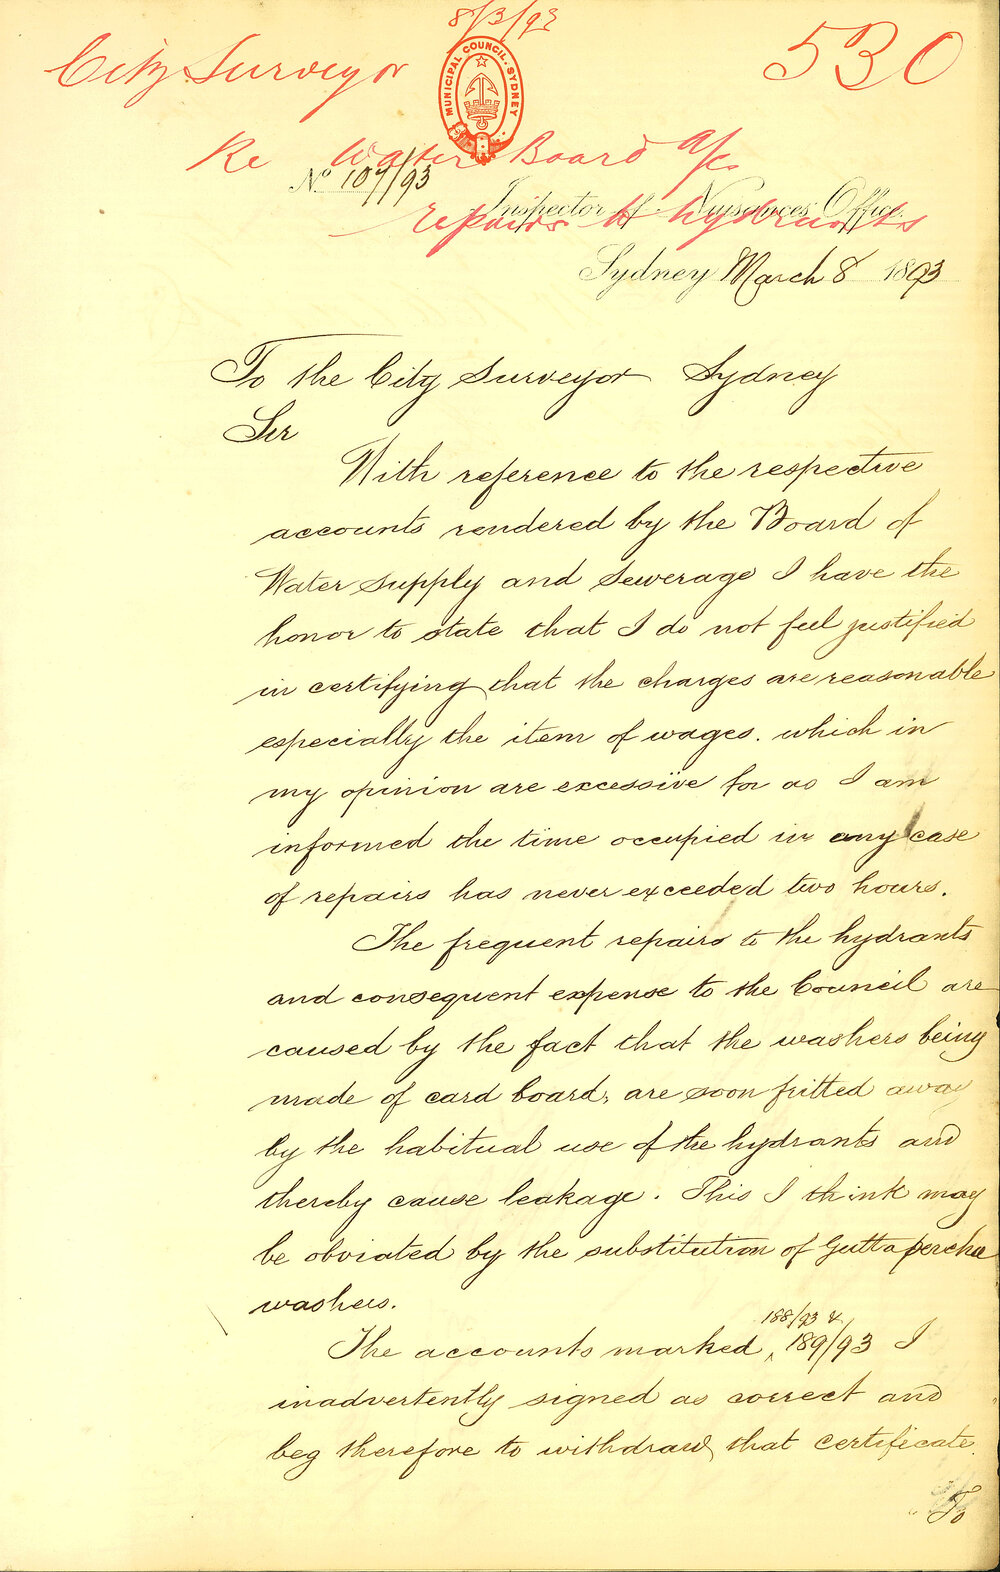 8/3/93
City Surveyor
530
MUNICIPAL COUNCIL. SYDNEY
Re Water Board a/cs
No 109/93
Inspector of Nuisances Office
repairs to hydrants
Sydney March 8 1893
To the City Surveyor Sydney
Sir
With reference to the respective
accounts rendered by the Board of
Water Supply and Sewerage I have the
honor to state that I do not feel justified
in certifying that the charges are reasonable
especially the item of wages. which in
my opinion are excessive for as I am
informed the time occupied in any case
of repairs has never exceeded two hours.
The frequent repairs to the hydrants
and consequent expense to the Council are
caused by the fact that the washers being
made of card board, are soon fritted away
by the habitual use of the hydrants and
thereby cause leakage. This I think may
be obviated by the substitution of Gutta percha
washers.
188/93 &
The accounts marked ‸ 189/93 I
inadvertently signed as correct and
beg therefore to withdraw that certificate.
To